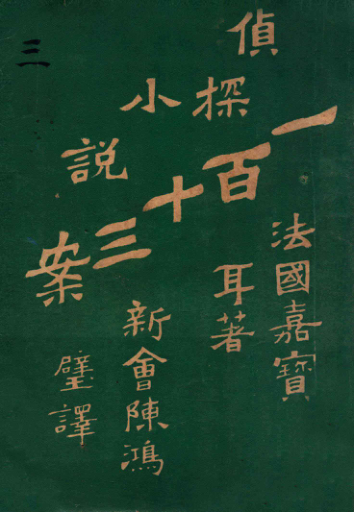 三
偵探小説
一百十三案
法國嘉寶耳著
新會陳鴻璧譯